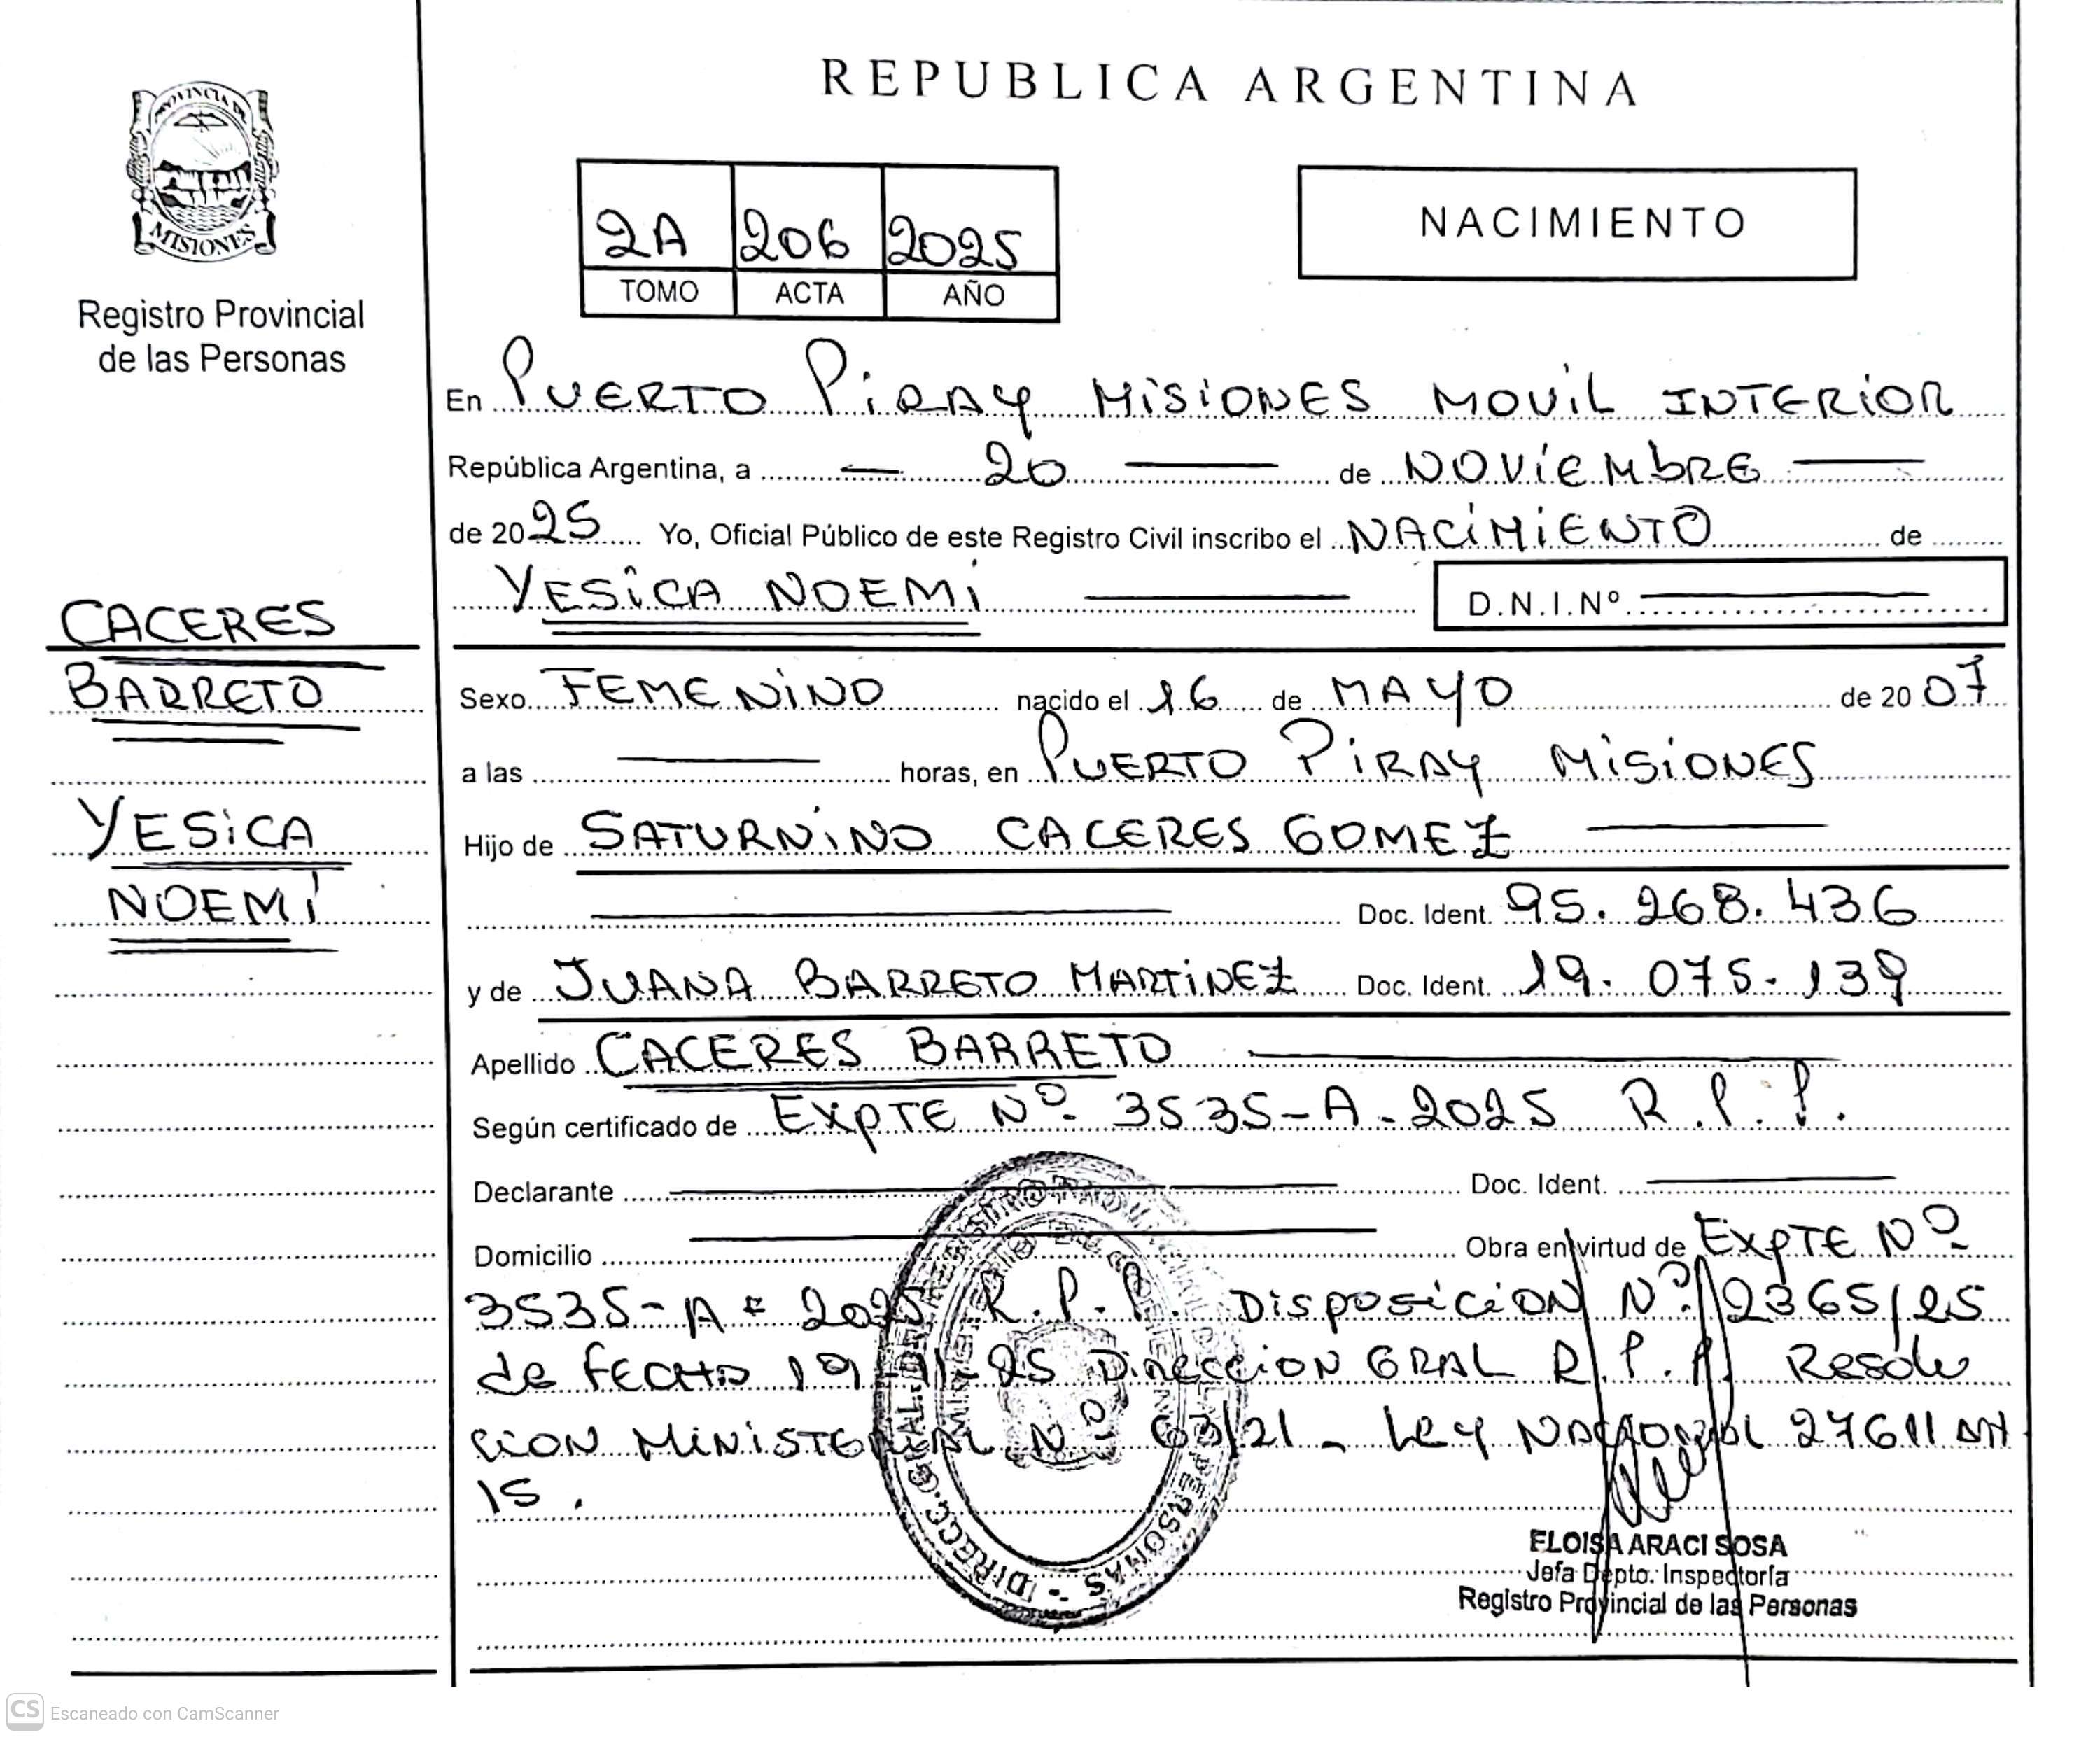 REPUBLICA ARGENTINA
PROVINCIA DE
MISIONES
Registro Provincial
de las Personas
2A 206 2025
TOMO ACTA AÑO
NACIMIENTO
En PUERTO PIRAY MISIONES MOVIL INTERIOR
República Argentina, a 20 de NOVIEMBRE
de 2025 Yo, Oficial Público de este Registro Civil inscribo el NACIMIENTO de
YESICA NOEMI D.N.I.Nº
CACERES
BARRETO
YESICA
NOEMI
Sexo FEMENINO nacido el 16 de MAYO de 2007
a las horas, en PUERTO PIRAY MISIONES
Hijo de SATURNINO CACERES GOMEZ
Doc. Ident. 95.268.436
y de JUANA BARRETO MARTINEZ Doc. Ident. 19.075.139
Apellido CACERES BARRETO
Según certificado de EXPTE Nº 3535-A-2025 R.P.P.
Declarante Doc. Ident.
Domicilio Obra en virtud de EXPTE Nº
3535-A-2025 R.P.P. DISPOSICION Nº 2365/25
de FECHA 19-11-25 DIRECCION GRAL R.P.P. Resolu
CION MINISTERIAL Nº 63/21 - Ley NACIONAL 27611 Art
15.
DIRECC. GRAL. DEL REGISTRO PROVINCIAL DE LAS PERSONAS -
ELOISA ARACI SOSA
Jefa Depto. Inspectoría
Registro Provincial de las Personas
CS Escaneado con CamScanner